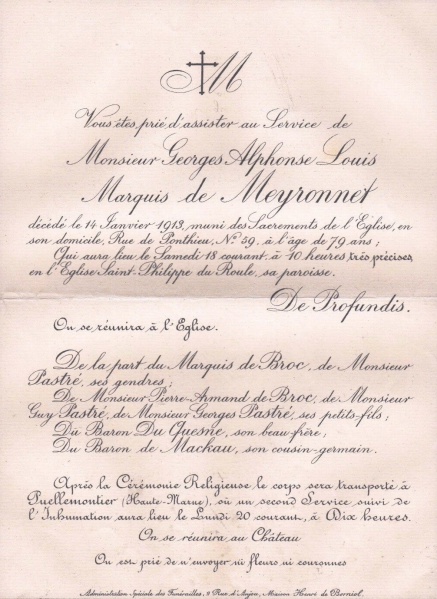 M
Vous êtes prié d'assister au Service de
Monsieur Georges Alphonse Louis
Marquis de Meyronnet
décédé le 14 Janvier 1913, muni des Sacrements de l'Eglise, en
son domicile, Rue de Ponthieu, No 59, à l'âge de 79 ans;
Qui aura lieu le Samedi 18 courant, à 10 heures, très précises,
en l'Eglise Saint-Philippe du Roule, sa paroisse.
De Profundis.
On se réunira à l'Eglise.
De la part du Marquis de Broc, de Monsieur
Pastré, ses gendres;
De Monsieur Pierre-Armand de Broc, de Monsieur
Guy Pastré, de Monsieur Georges Pastré, ses petits-fils;
Du Baron Du Quesne, son beau-frère;
Du Baron de Mackau, son cousin-germain.
Après la Cérémonie Religieuse le corps sera transporté à
Puellemontier (Haute-Marne), où un second Service suivi de
l'Inhumation aura lieu le Lundi 20 courant, à Dix heures.
On se réunira au Château
On est prié de n'envoyer ni fleurs ni couronnes
Administration Spéciale des Funérailles, 9 Rue d'Anjou, Maison Henri de Borniol.